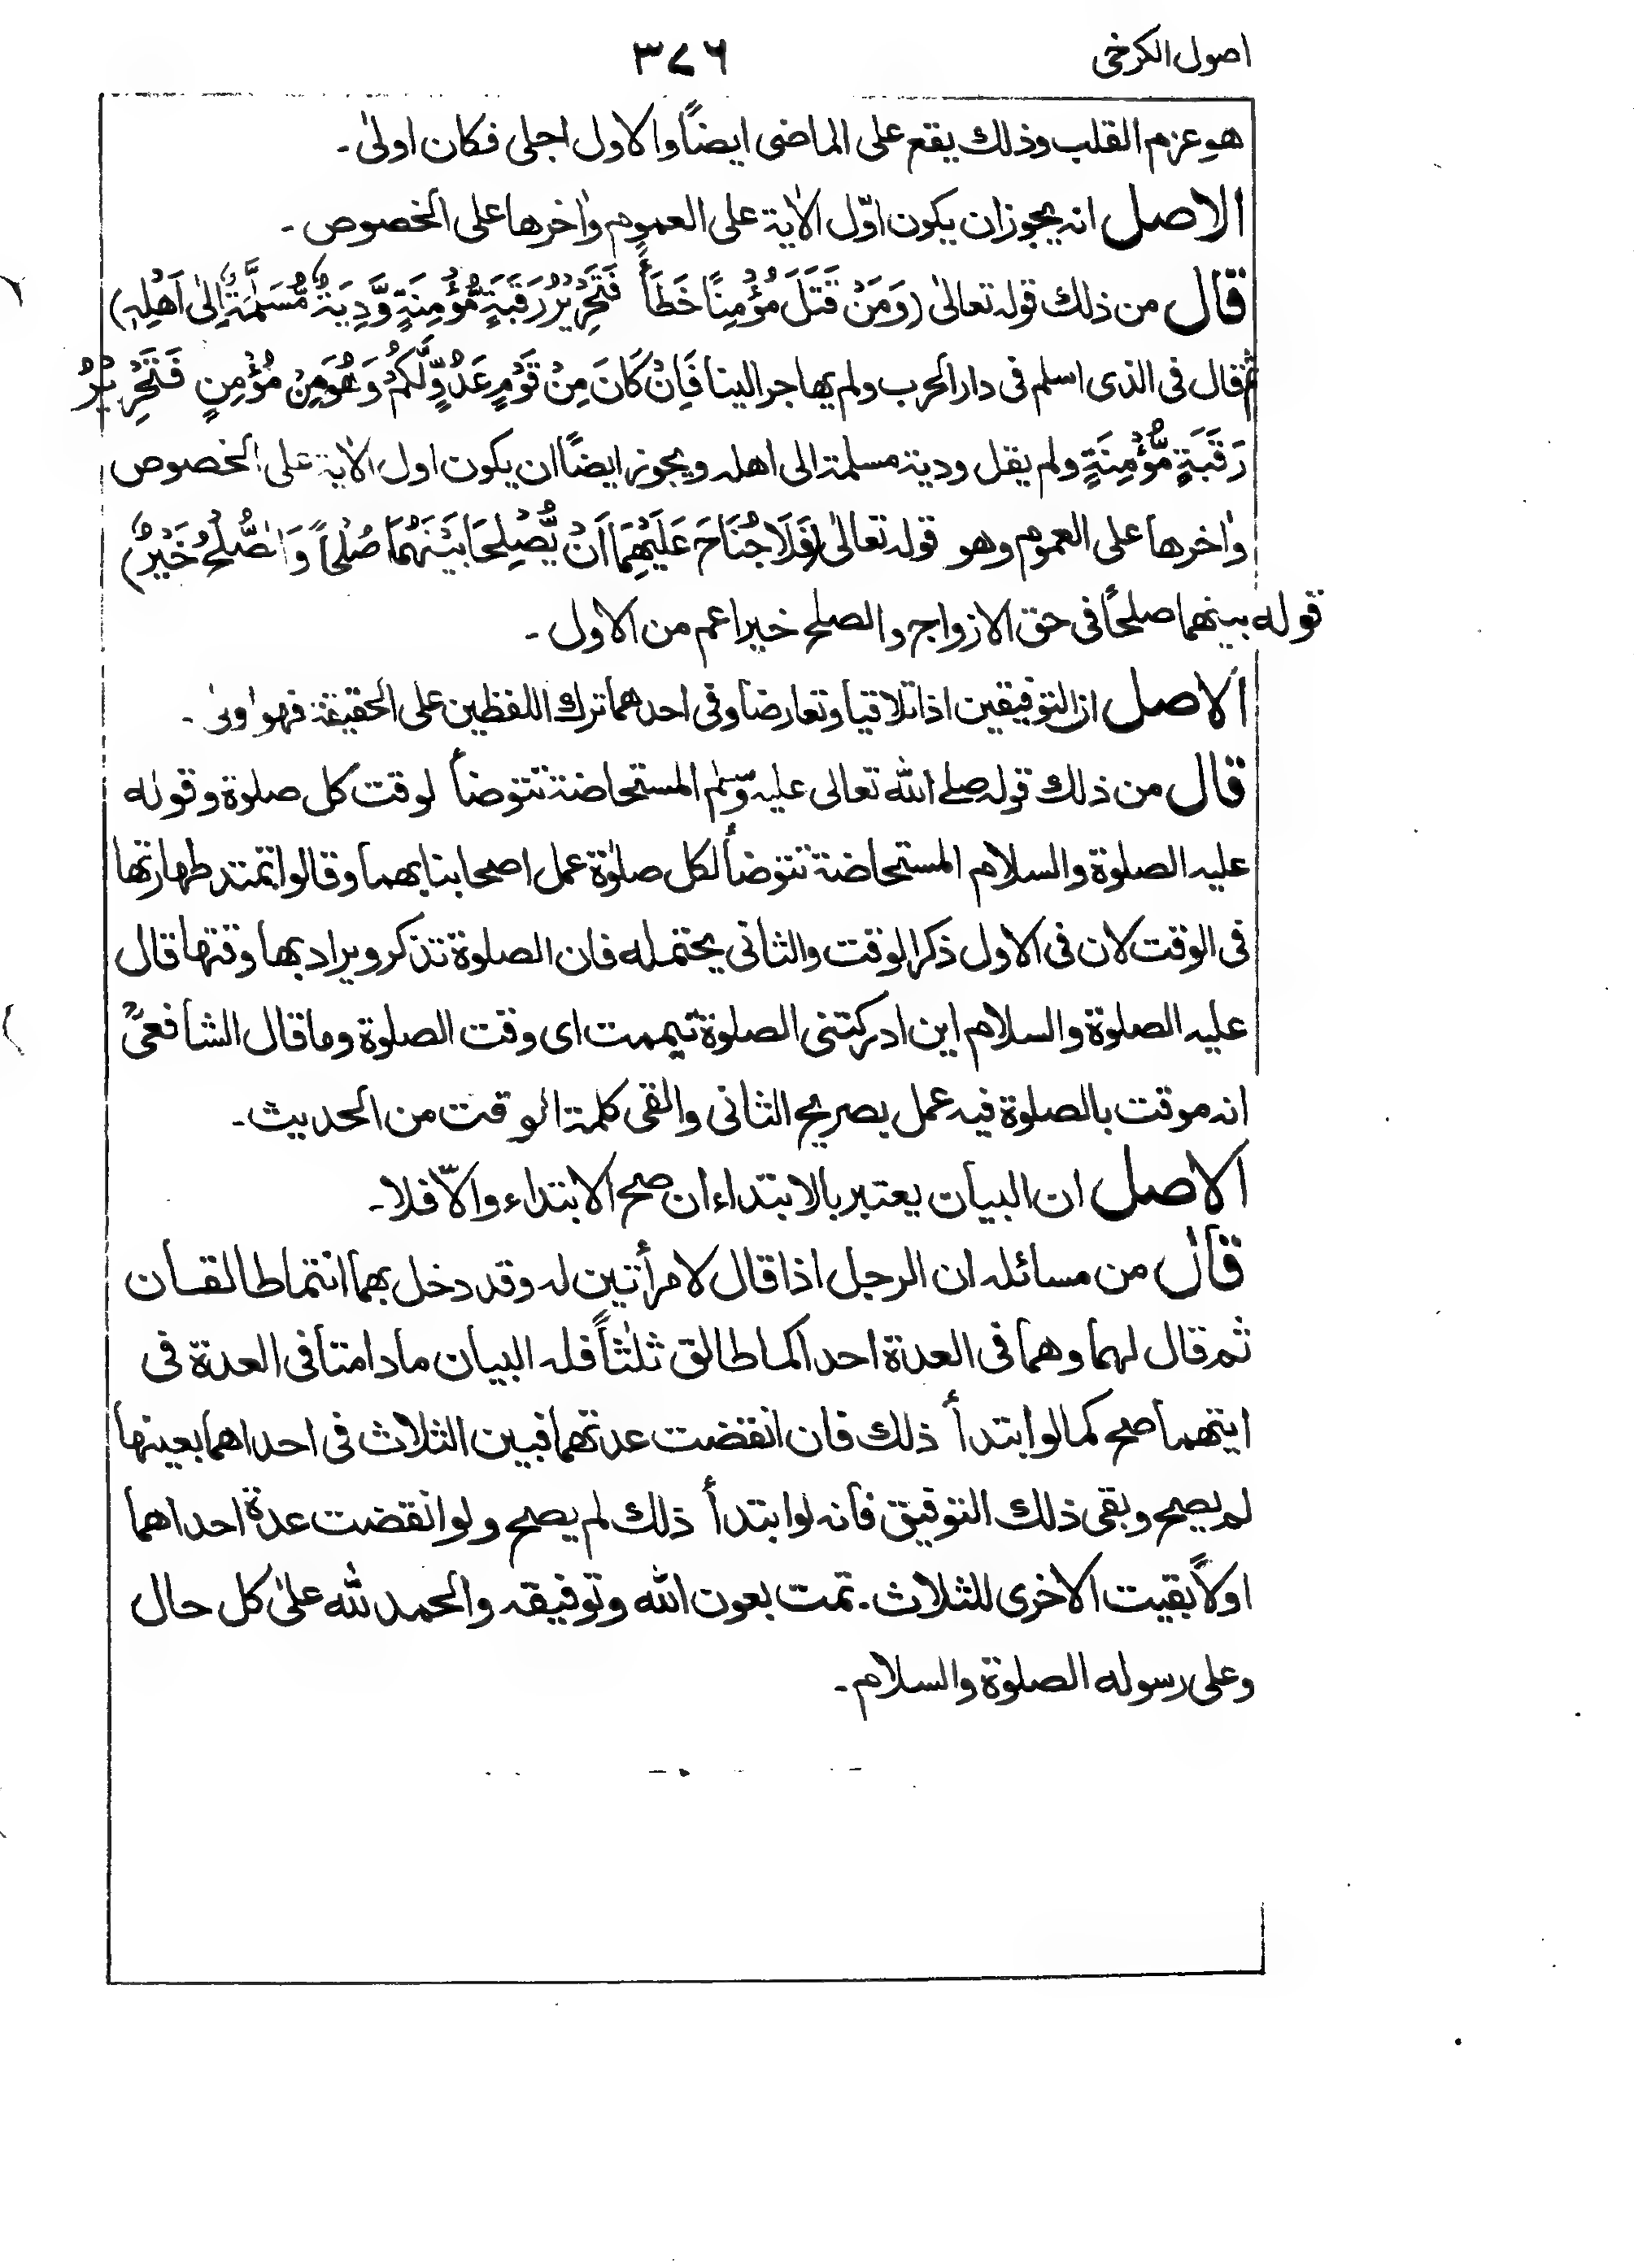 اصول الكرخی
۳۷۶
هو عزم القلب وذلك يقع على الماضى ايضاً والاول اجلى فكان اولىٰ۔
الاصل انه يجوز ان يكون اوّل الاٰية على العموم واٰخرها على الخصوص۔
قال من ذلك قوله تعالىٰ (وَمَنْ قَتَلَ مُؤْمِنًا خَطَأً فَتَحْرِيْرُ رَقَبَةٍ مُّؤْمِنَةٍ وَّدِيَةٌ مُّسَلَّمَةٌ اِلىٰ اَهْلِهٖ)
ثم قال فى الذى اسلم فى دار الحرب ولم يهاجر الينا فَاِنْ كَانَ مِنْ قَوْمٍ عَدُوٍّ لَّكُمْ وَهُوَ مِنْ مُؤْمِنٍ فَتَحْرِيْرُ
رَقَبَةٍ مُّؤْمِنَةٍ ولم يقل ودية مسلمة الى اهله ويجوز ايضاً ان يكون اول الاٰية على الخصوص
واٰخرها على العموم وهو قوله تعالىٰ (فَلَا جُنَاحَ عَلَيْهِمَا اَنْ يُّصْلِحَا بَيْنَهُمَا صُلْحاً وَالصُّلْحُ خَيْرٌ)
قوله بينهما صلحاً فى حق الازواج والصلح خير اعم من الاول۔
الاصل ان التوفيقين اذا تلاقيا وتعارضا وفى احدهما ترك اللفظين على الحقيقة فهو اولىٰ۔
قال من ذلك قوله صلے الله تعالى عليه وسلم المستحاضة تتوضأ لوقت كل صلوة وقوله
عليه الصلوة والسلام المستحاضة تتوضأ لكل صلوٰة عمل اصحابنا بهما وقالوا تمتد طهارتها
فى الوقت لان فى الاول ذكر الوقت والثانى يحتمله فان الصلوة تذكر ويراد بها وقتها قال
عليه الصلوة والسلام اين ادركتنى الصلوة تيممت اى وقت الصلوة وما قال الشافعىؒ
انه موقت بالصلوة فيه عمل بصريح الثانى والقى كلمة الوقت من الحديث۔
الاصل ان البيان يعتبر بالابتداء ان صح الابتداء والّا فلا۔
قال من مسائله ان الرجل اذا قال لامرأتين له وقد دخل بهما انتما طالقان
ثم قال لهما وهما فى العدة احداكما طالق ثلٰثاً فله البيان مادامتا فى العدة فى
ايتهما صح كما لو ابتدأ ذلك فان انقضت عدتهما فبين الثلاث فى احداهما بعينها
لم يصح وبقى ذلك التوفيق فانه لو ابتدأ ذلك لم يصح ولو انقضت عدة احداهما
اولاً بقيت الاخرى للثلاث۔ تمت بعون الله وتوفيقه والحمد لله علىٰ كل حال
وعلى رسوله الصلوة والسلام۔